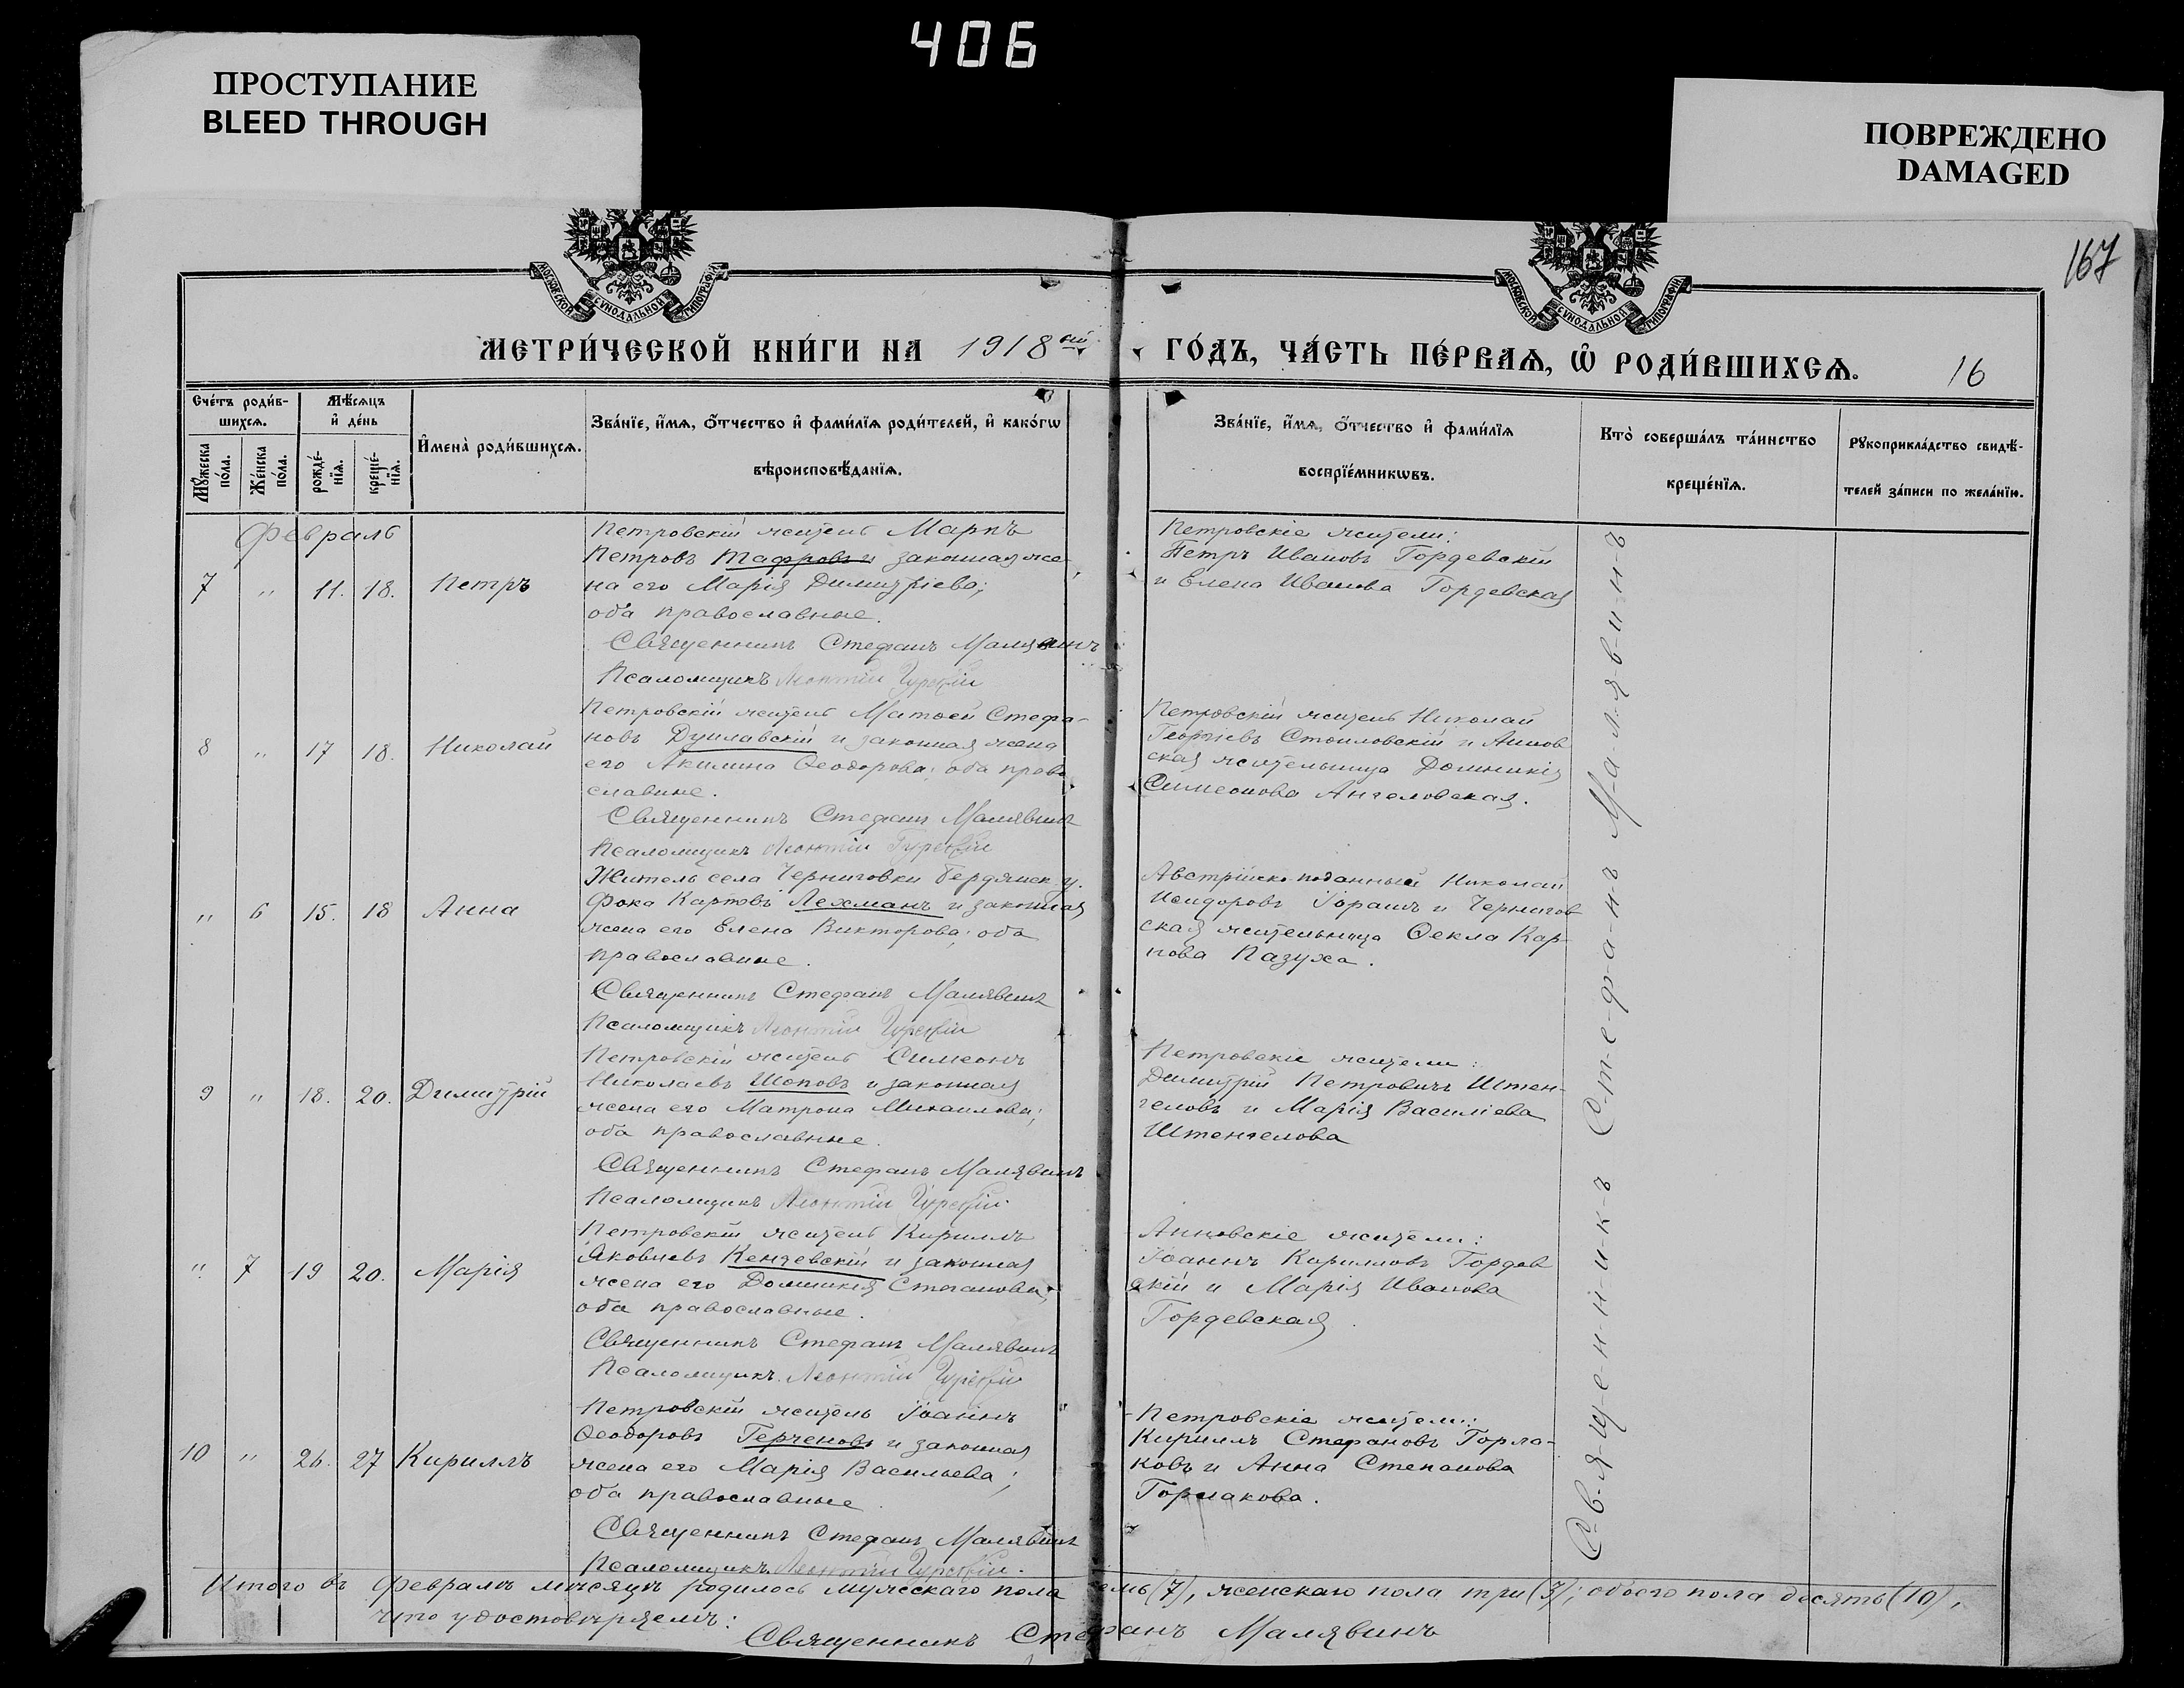 406
ПРОСТУПАНИЕ
BLEED THROUGH
ПОВРЕЖДЕНО
DAMAGED
167
МОСКОВСКОЙ СУНОДАЛЬНОЙ ТИПОГРАФІИ
МОСКОВСКОЙ СУНОДАЛЬНОЙ ТИПОГРАФІИ
МЕТРИ́ЧЕСКОЙ КНИ́ГИ НА 1918ый ГО́ДЪ, ЧА́СТЬ ПЕ́РВАѦ, Ѿ РОДИ́ВШИХСѦ.
16
Сче́тъ роди́в-
шихсѧ.
Мꙋ́жеска по́ла.
Же́нска по́ла.
Мѣ́сѧцъ
и҆ де́нь
рожде́-нїѧ.
креще́-нїѧ.
И҆мена̀ роди́вшихсѧ.
Зва́нїе, и҆́мѧ, ѻ҆́тчество и҆ фами́лїѧ роди́телей, и҆ како́гѡ
вѣроисповѣ́данїѧ.
Зва́нїе, и҆́мѧ, ѻ҆́тчество и҆ фами́лїѧ
воспрїе́мникѡвъ.
Кто̀ соверша́лъ та́инство
креще́нїѧ.
Рꙋкоприкла́дство свидѣ́-
телей за́писи по жела́нїю.
Февраль
7 " 11. 18. Петръ
Петровскій житель Маркъ
Петровъ и законная же
на его Марія Димитріева;
оба православные.
Священникъ Стефанъ Малявинъ
Псаломщикъ Леонтій
Петровскіе жители:
Петръ Ивановъ Гордевскій
и Елена Иванова Гордевская
8 " 17 18. Николай
Петровскій житель Матѳей Стефа-
новъ Дуплавскій и законная жена
его Акилина Ѳеодорова; оба право
славные.
Священникъ Стефанъ Малявинъ
Псаломщикъ Леонтій
Петровскій житель Николай
Георгіевъ Стоиловскій и Аннов
ская жительница Домникія
Симеонова Ангеловская.
" 6 15. 18 Анна
Житель села Черниговки Бердянск. у.
Фока Карповъ Лехманъ и законная
жена его Елена Викторова; оба
православные.
Священникъ Стефанъ Малявинъ
Псаломщикъ Леонтій
Австрійско-поданный Николай
Исидоровъ и Чернигов
ская жительница Ѳекла Кар-
пова Пазуха.
9 " 18. 20. Димитрій
Петровскій житель Симеонъ
Николаевъ Шоповъ и законная
жена его Матрона Михаилова;
оба православные.
Священникъ Стефанъ Малявинъ
Псаломщикъ Леонтій
Петровскіе жители:
Димитрій Петровичъ Штен-
геловъ и Марія Василіева
Штенгелова
" 7 19 20. Марія
Петровскій житель Кириллъ
Яковлевъ и законная
жена его Домникія Степанова;
оба православные.
Священникъ Стефанъ Малявинъ
Псаломщикъ Леонтій
Анновскіе жители:
Іоаннъ Кирилловъ Гордев
скій и Марія Иванова
Гордевская.
10 " 26. 27 Кириллъ
Петровскій житель Іоаннъ
Ѳеодоровъ Герченовъ и законная
жена его Марія Васильева;
оба православные.
Священникъ Стефанъ Малявинъ
Псаломщикъ Леонтій
Петровскіе жители:
Кириллъ Стефановъ Горла-
ковъ и Анна Степанова
Горлакова.
С-в-я-щ-е-н-н-и-к-ъ С-т-е-ф-а-н-ъ М-а-л-я-в-и-н-ъ
Итого въ февралѣ мѣсяцѣ родилось мужескаго пола семь (7), женскаго пола три (3); обоего пола десять (10),
что удостовѣряемъ:
Священникъ Стефанъ Малявинъ